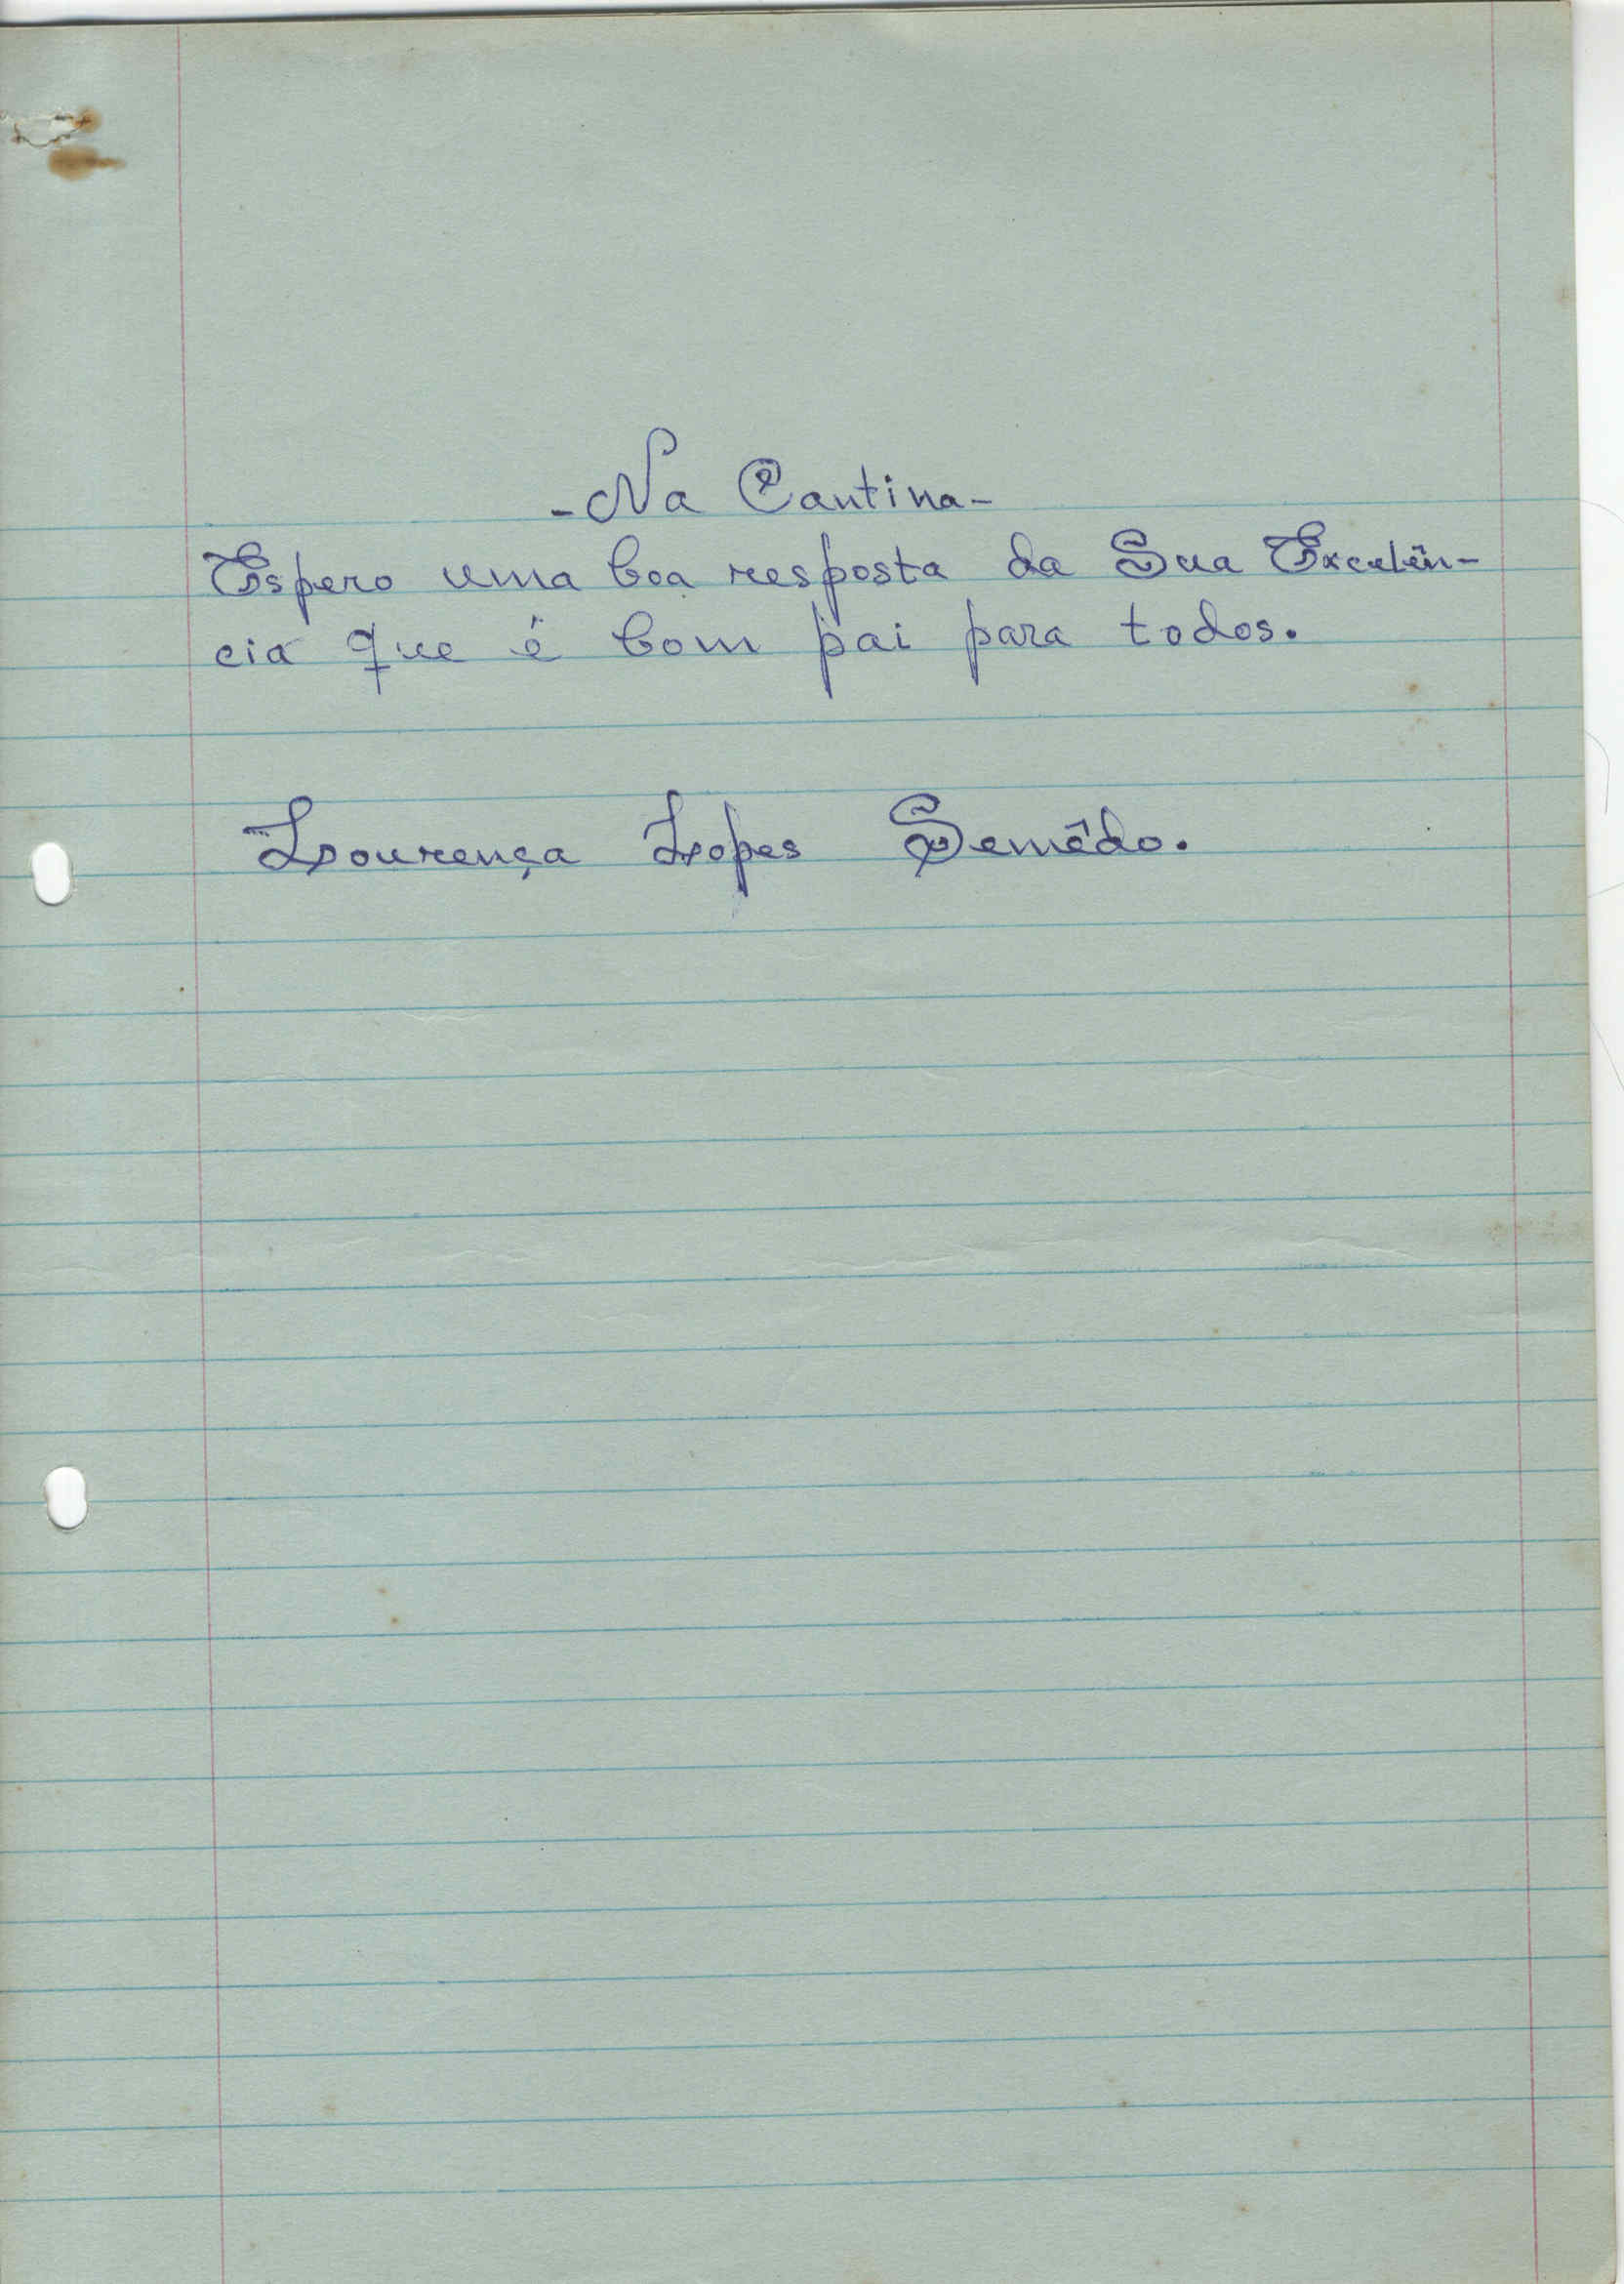 - Na Cantina -
Espero uma boa resposta da Sua Excelên-
cia que é bom pai para todos.
Lourença Lopes Semêdo.